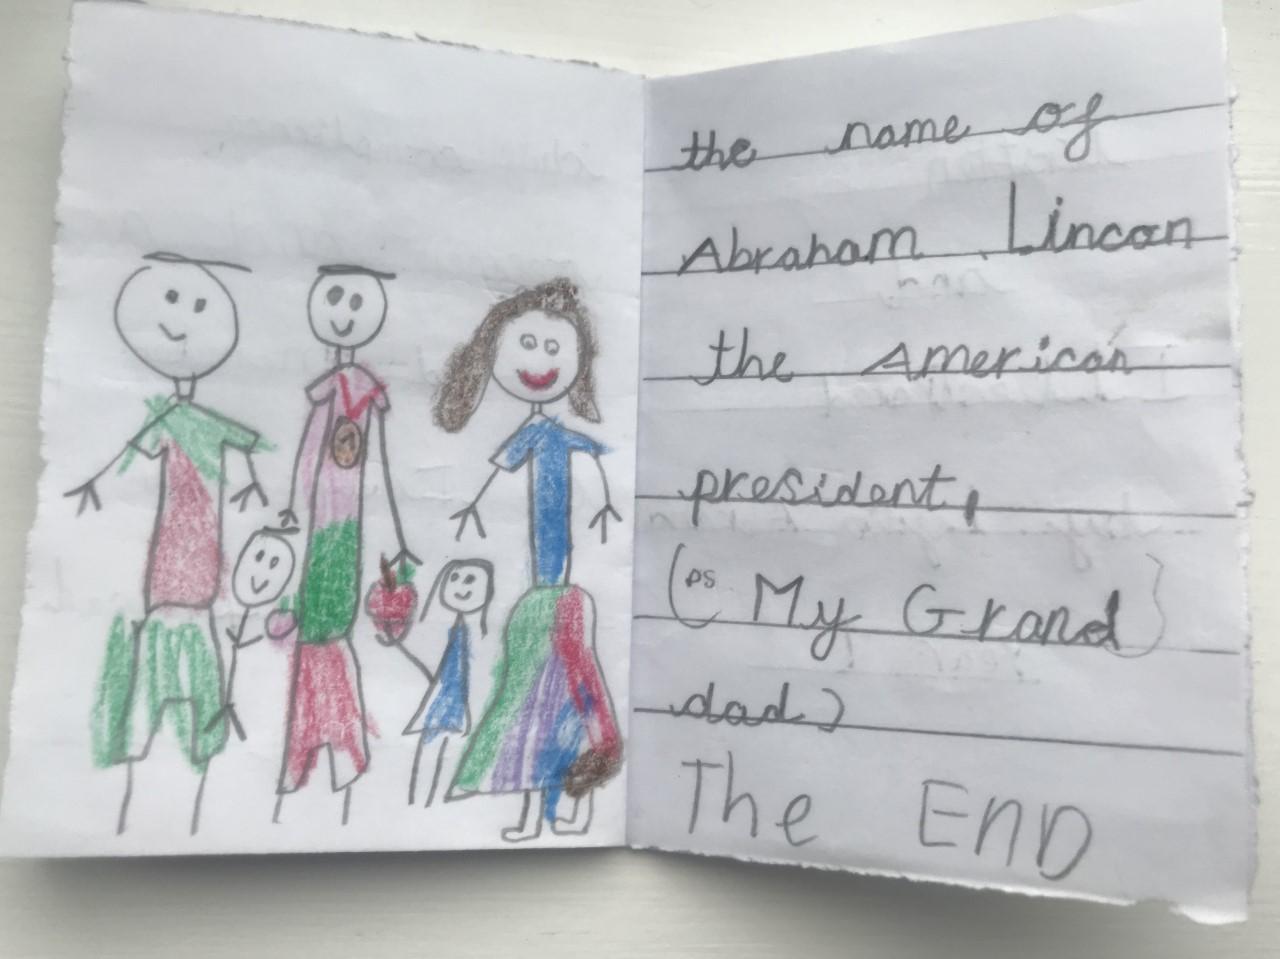 the name of
Abraham Lincoan
the American
president,
(ps My Grand
dad)
The END
1